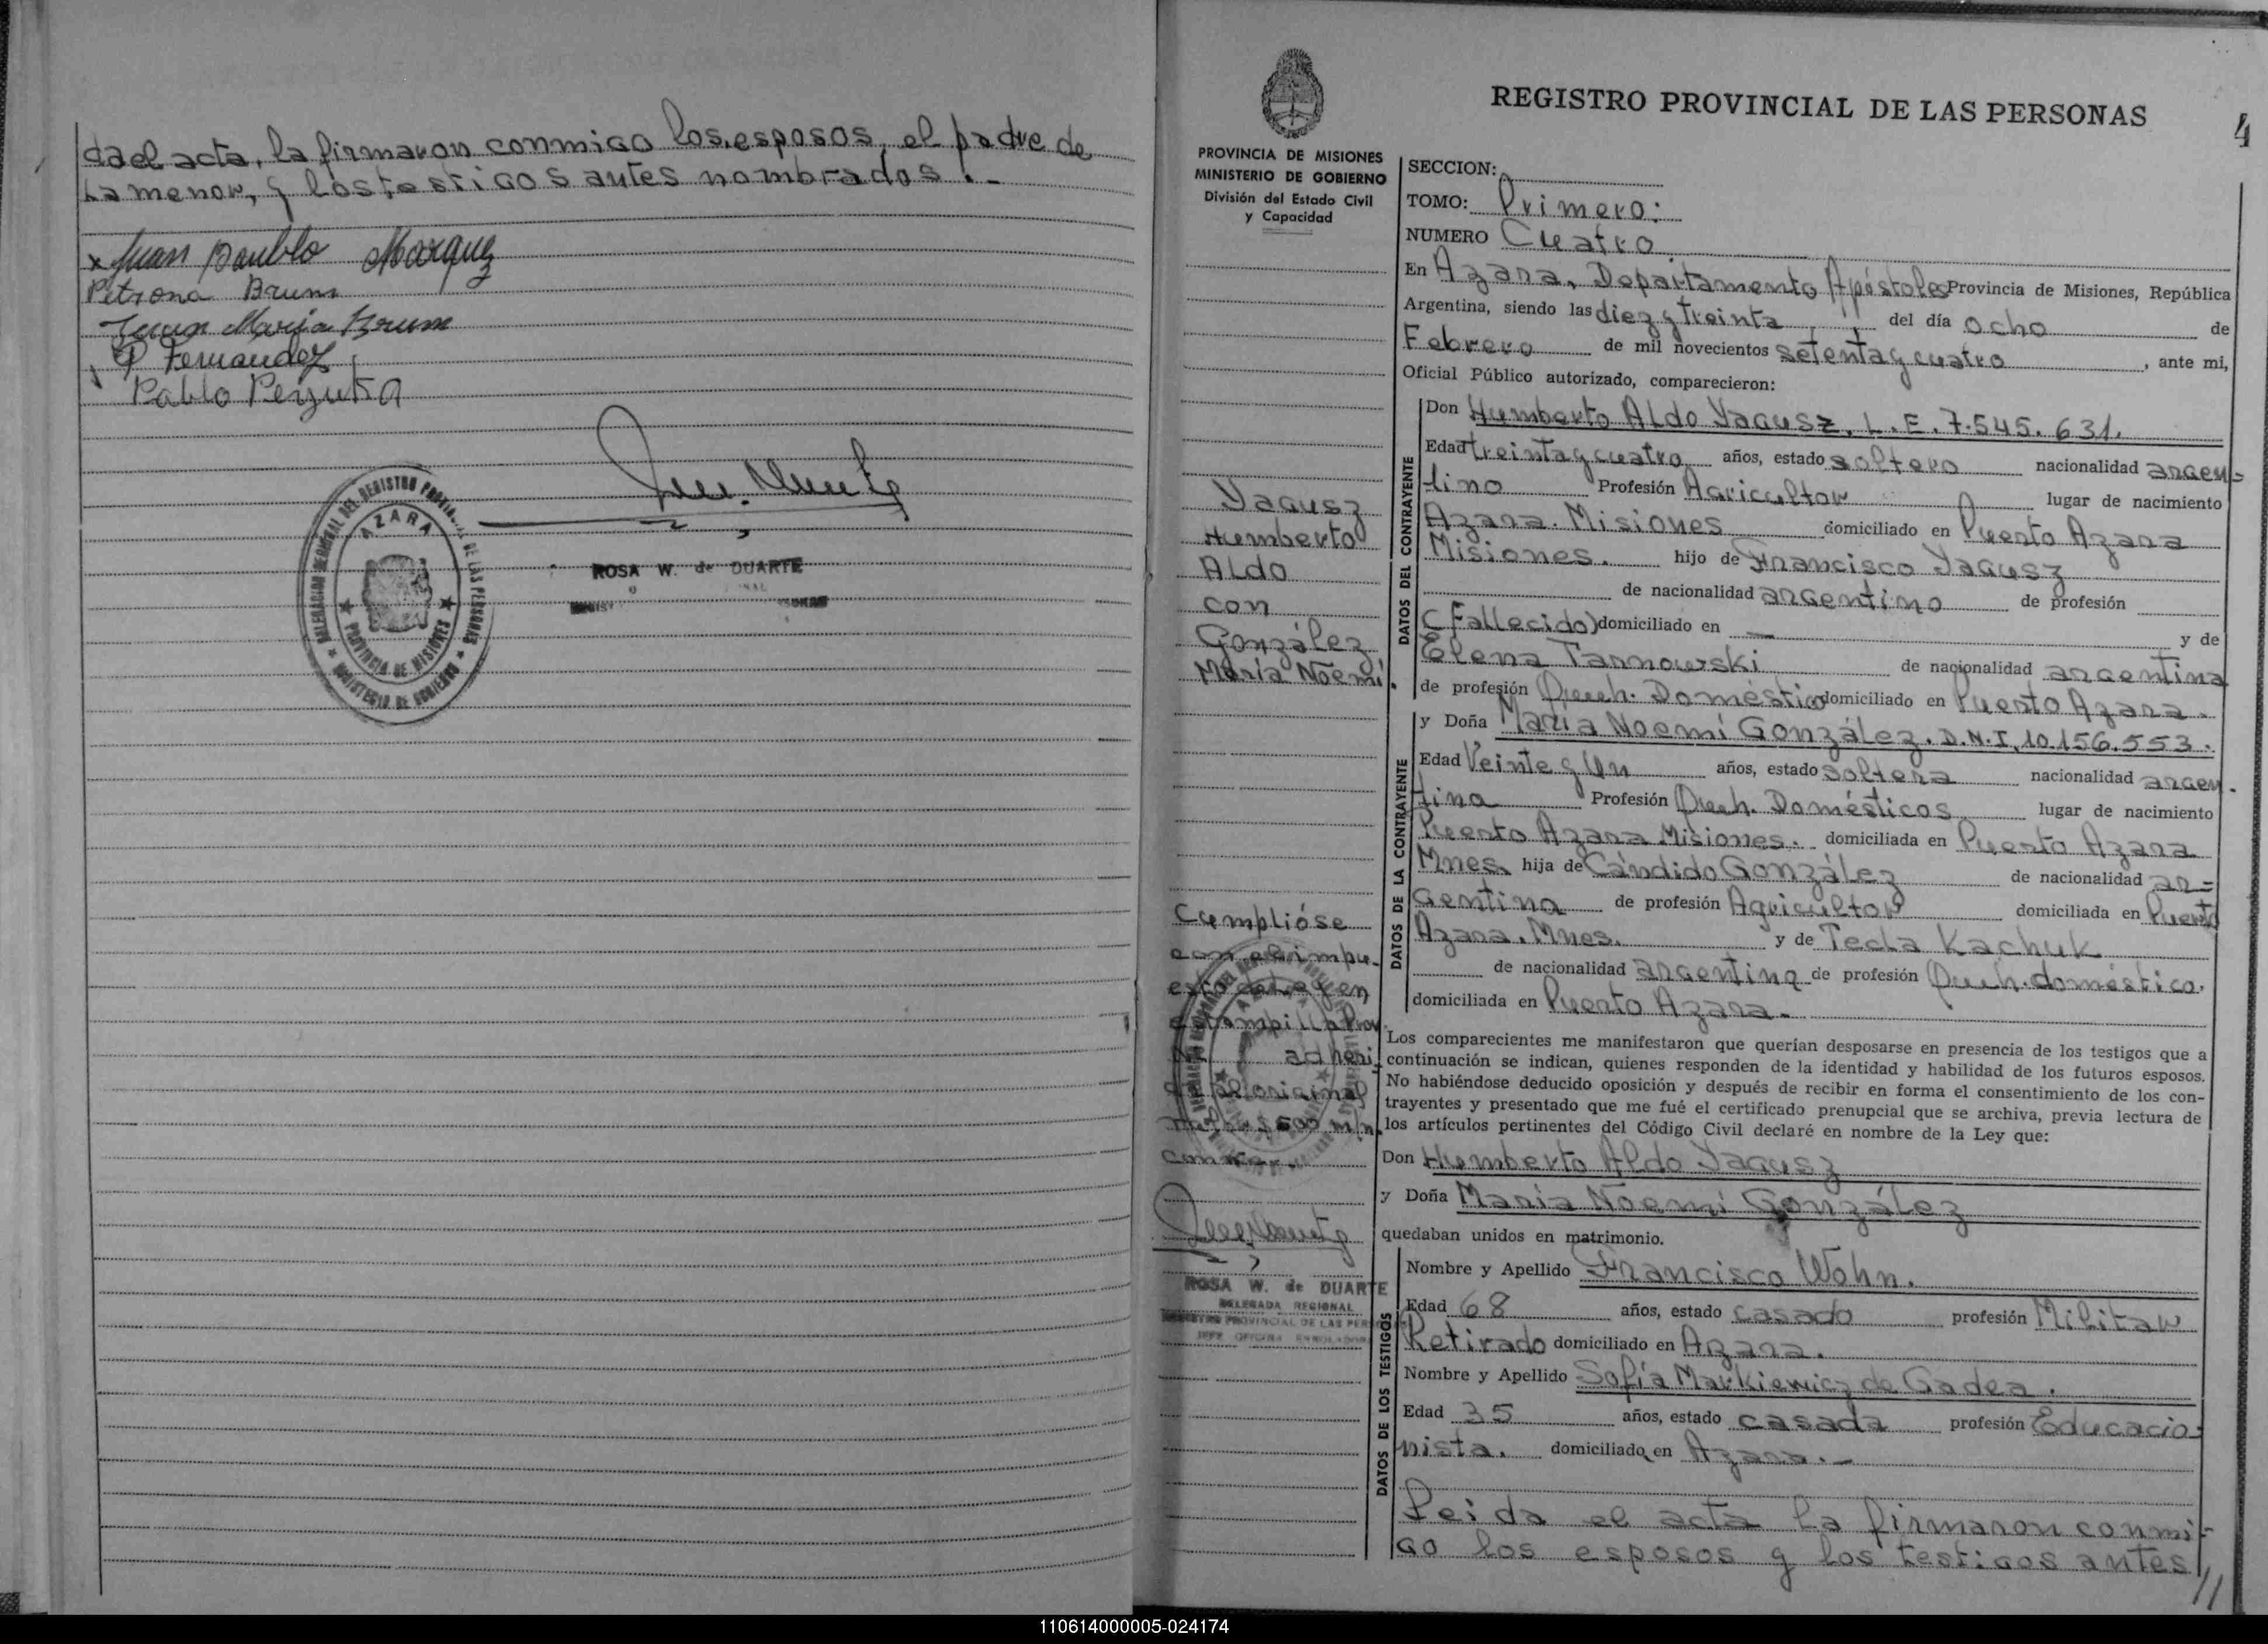 da el acta, la firmaron conmigo los esposos, el padre de
la menor, y los testigos antes nombrados.-
x Juan Paublo Marquez
Petrona Brum
Juan Maria Brum
P Fernandez
Pablo
DELEGACION REGIONAL DEL REGISTRO PROVINCIAL DE LAS PERSONAS
AZARA
PROVINCIA DE MISIONES
MINISTERIO DE GOBIERNO
ROSA W. de DUARTE
REGISTRO PROVINCIAL DE LAS PERSONAS
4
PROVINCIA DE MISIONES
MINISTERIO DE GOBIERNO
División del Estado Civil
y Capacidad
SECCION:
TOMO: Primero:
NUMERO Cuatro
En Azara, Departamento Apóstoles Provincia de Misiones, República
Argentina, siendo las diez y treinta,,, del día ocho de
Febrero de mil novecientos setenta y cuatro, ante mi,
Oficial Público autorizado, comparecieron:
DATOS DEL CONTRAYENTE
Don Humberto Aldo Yagusz. L.E. 7.545.631.
Edad treinta y cuatro años, estado soltero nacionalidad argen=
tino Profesión Agricultor lugar de nacimiento
Azara. Misiones domiciliado en Puerto Azara
Misiones. hijo de Francisco Yagusz
de nacionalidad argentino de profesión
(Fallecido) domiciliado en — y de
Elena Tarnowski de nacionalidad argentina
de profesión Queh. Doméstico domiciliado en Puerto Azara.
Yagusz
Humberto
Aldo
con
González
María Noemí.
DATOS DE LA CONTRAYENTE
y Doña María Noemí González. D.N.I. 10.156.553.
Edad Veinte y Un años, estado soltera nacionalidad argen-
tina Profesión Queh. Domésticos lugar de nacimiento
Puerto Azara Misiones. domiciliada en Puerto Azara
Mnes. hija de Cándido González de nacionalidad ar=
gentina de profesión Agricultor domiciliada en Puerto
Azara. Mnes. y de Tecla Kachuk
de nacionalidad argentina de profesión Queh. doméstico.
domiciliada en Puerto Azara.
Cumplióse
con el impu-
esto en
estampilla Prov
adheri
original
$ 500 m/n.
ROSA W. de DUARTE
DELEGADA REGIONAL
REGISTRO PROVINCIAL DE LAS PERSONAS
JEFE OFICINA ENROLADORA
Los comparecientes me manifestaron que querían desposarse en presencia de los testigos que a
continuación se indican, quienes responden de la identidad y habilidad de los futuros esposos.
No habiéndose deducido oposición y después de recibir en forma el consentimiento de los con-
trayentes y presentado que me fué el certificado prenupcial que se archiva, previa lectura de
los artículos pertinentes del Código Civil declaré en nombre de la Ley que:
Don Humberto Aldo Yagusz
y Doña María Noemí González
quedaban unidos en matrimonio.
DATOS DE LOS TESTIGOS
Nombre y Apellido Francisco Wohn.
Edad 68 años, estado casado profesión Militar
Retirado domiciliado en Azara.
Nombre y Apellido Sofía Markiewicz de Gadea.
Edad 35 años, estado casada profesión Educacio-
nista. domiciliado en Azara.-
Leida el acta la firmaron conmi-
go los esposos y los testigos antes
//
110614000005-024174